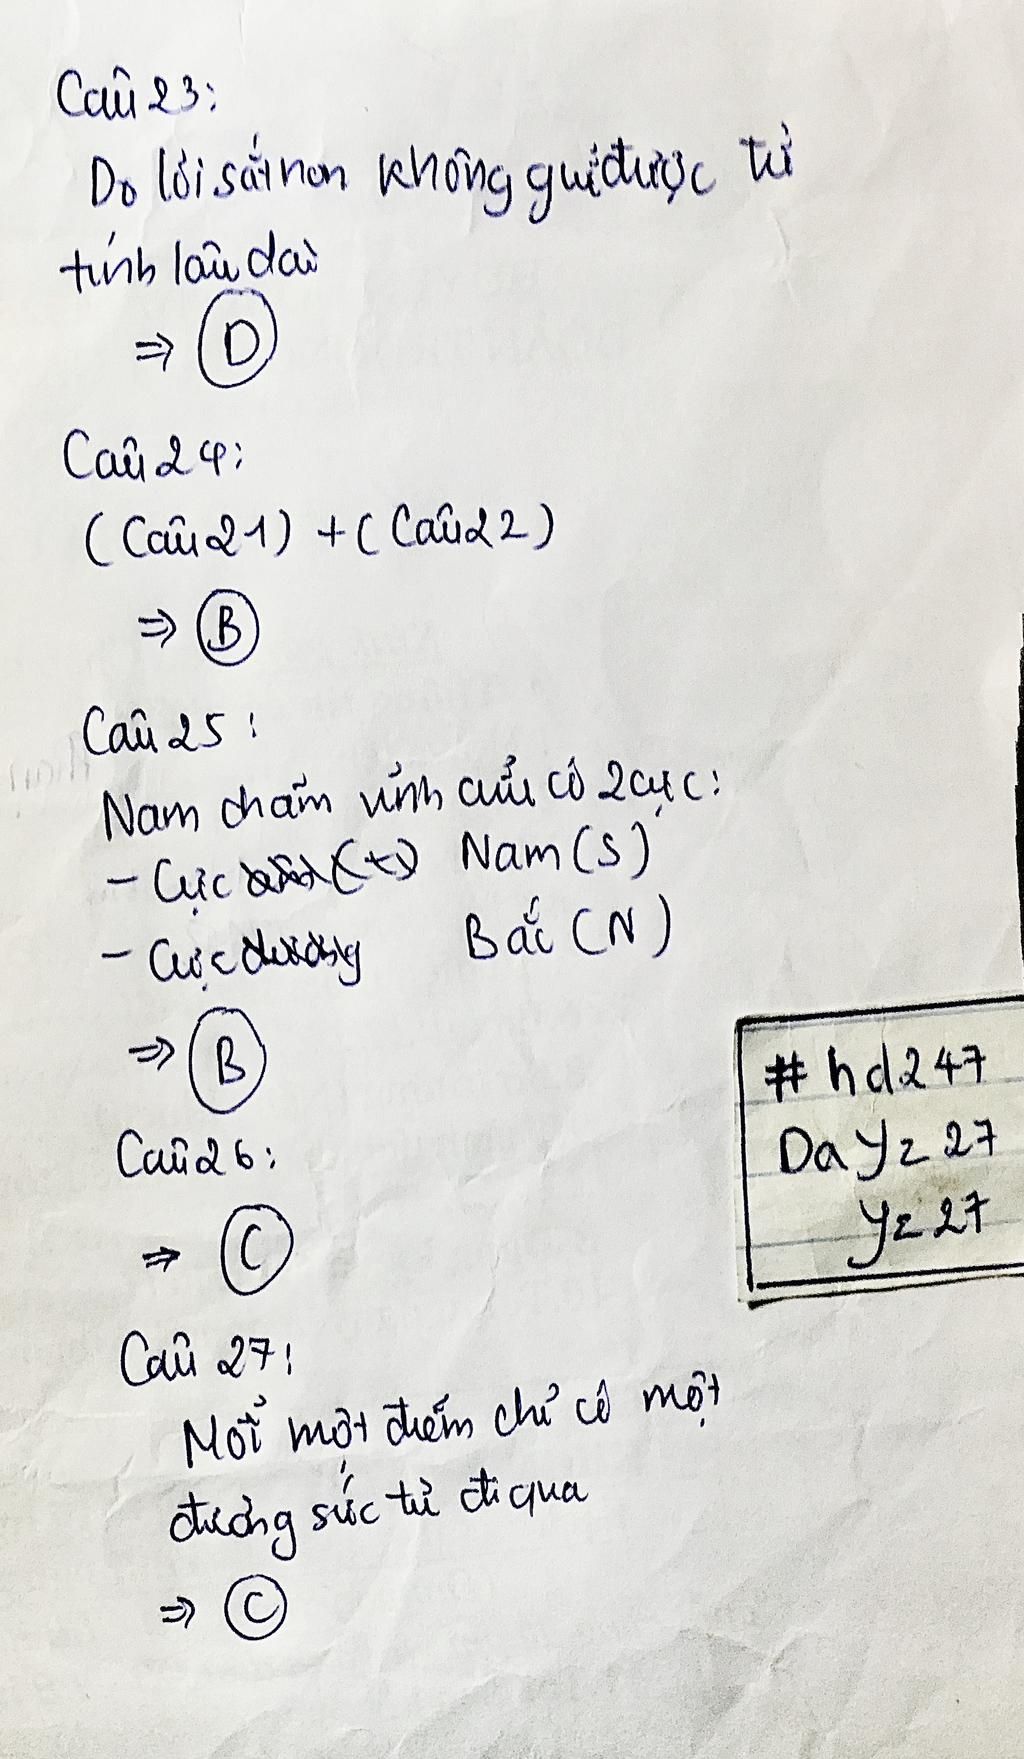 Câu 23:
Do lõi sắt non không giữ được từ
tính lâu dài
⇒ D
Câu 24:
(Câu 21) + (Câu 22)
⇒ B
Câu 25:
Nam châm vĩnh cửu có 2 cực:
- Cực (+) Nam (S)
- Cực dương Bắc (N)
⇒ B
Câu 26:
⇒ C
Câu 27:
Mỗi một điểm chỉ có một
đường sức từ đi qua
⇒ C
# hd247
Dayz 27
yz 27